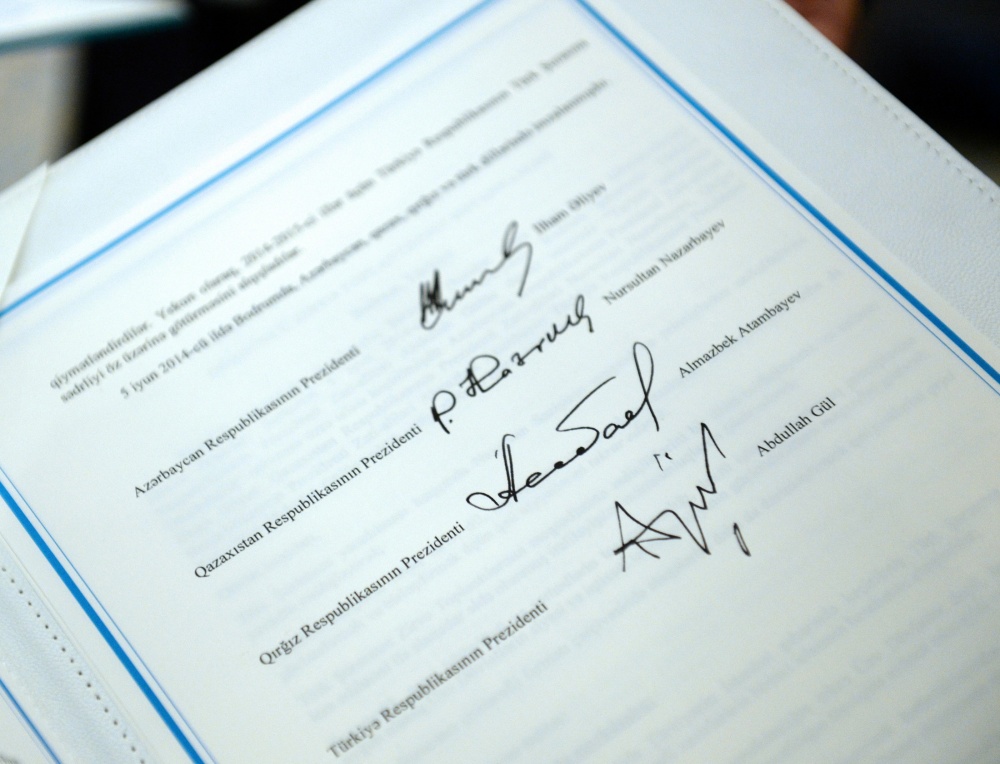 qiymətləndirdilər. Yekun olaraq, 2014-2015-ci illər üçün Türkiyə Respublikasının Türk Şurasına
sədrliyi öz üzərinə götürməsini alqışladılar.
5 iyun 2014-cü ildə Bodrumda, Azərbaycan, qazax, qırğız və türk dillərində imzalanmışdır
Azərbaycan Respublikasının Prezidenti İlham Əliyev
Qazaxıstan Respublikasının Prezidenti Nursultan Nazarbayev
Qırğız Respublikasının Prezidenti Almazbek Atambayev
Türkiyə Respublikasının Prezidenti Abdullah Gül